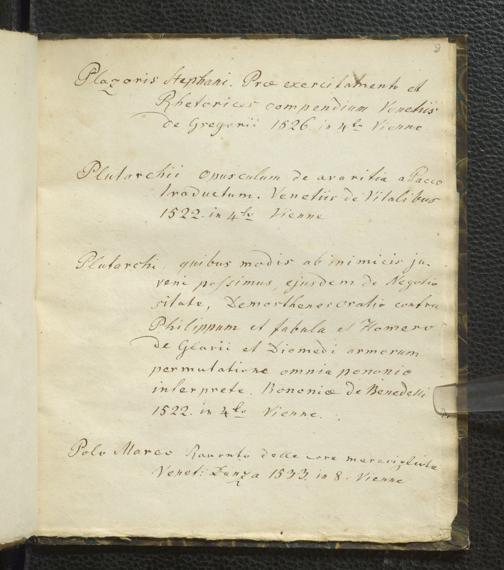 Plazoris Stephani. Præ exercitamenta et
Rhetorices compendium Venetiis
de Gregorii 1526 in 4to Vienne
Plutarchii Opusculum de avaritia a Pacco
traductum. Venetiis de Vitalibus
1522. in 4to Vienne
Plutarchi, quibus modis ab inimicis ju-
veni possimus, ejusdem de Negotio
sitate, Demosthenes oratio contra
Philippum et fabula et Homero
de Glauii et Diomedi armorum
permutatione omnia pononio
interprete. Bononiæ de Benedetti
1522. in 4to Vienne.
Polo Marco delle cose
Venet: Danza 1533. in 8: Vienne